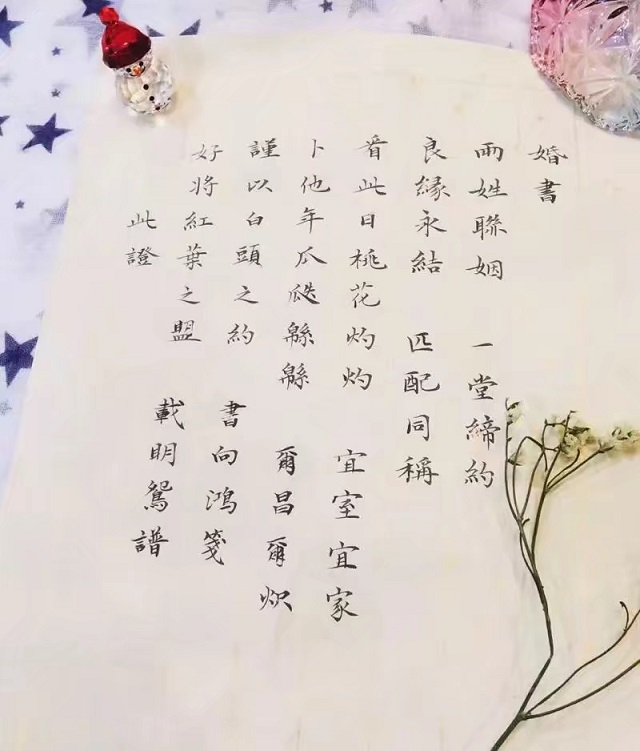 婚書
兩姓聯姻 一堂締約
良緣永結 匹配同稱
看此日桃花灼灼 宜室宜家
卜他年瓜瓞緜緜 爾昌爾炽
謹以白頭之約 書向鴻箋
好將紅葉之盟 載明鴛譜
此證